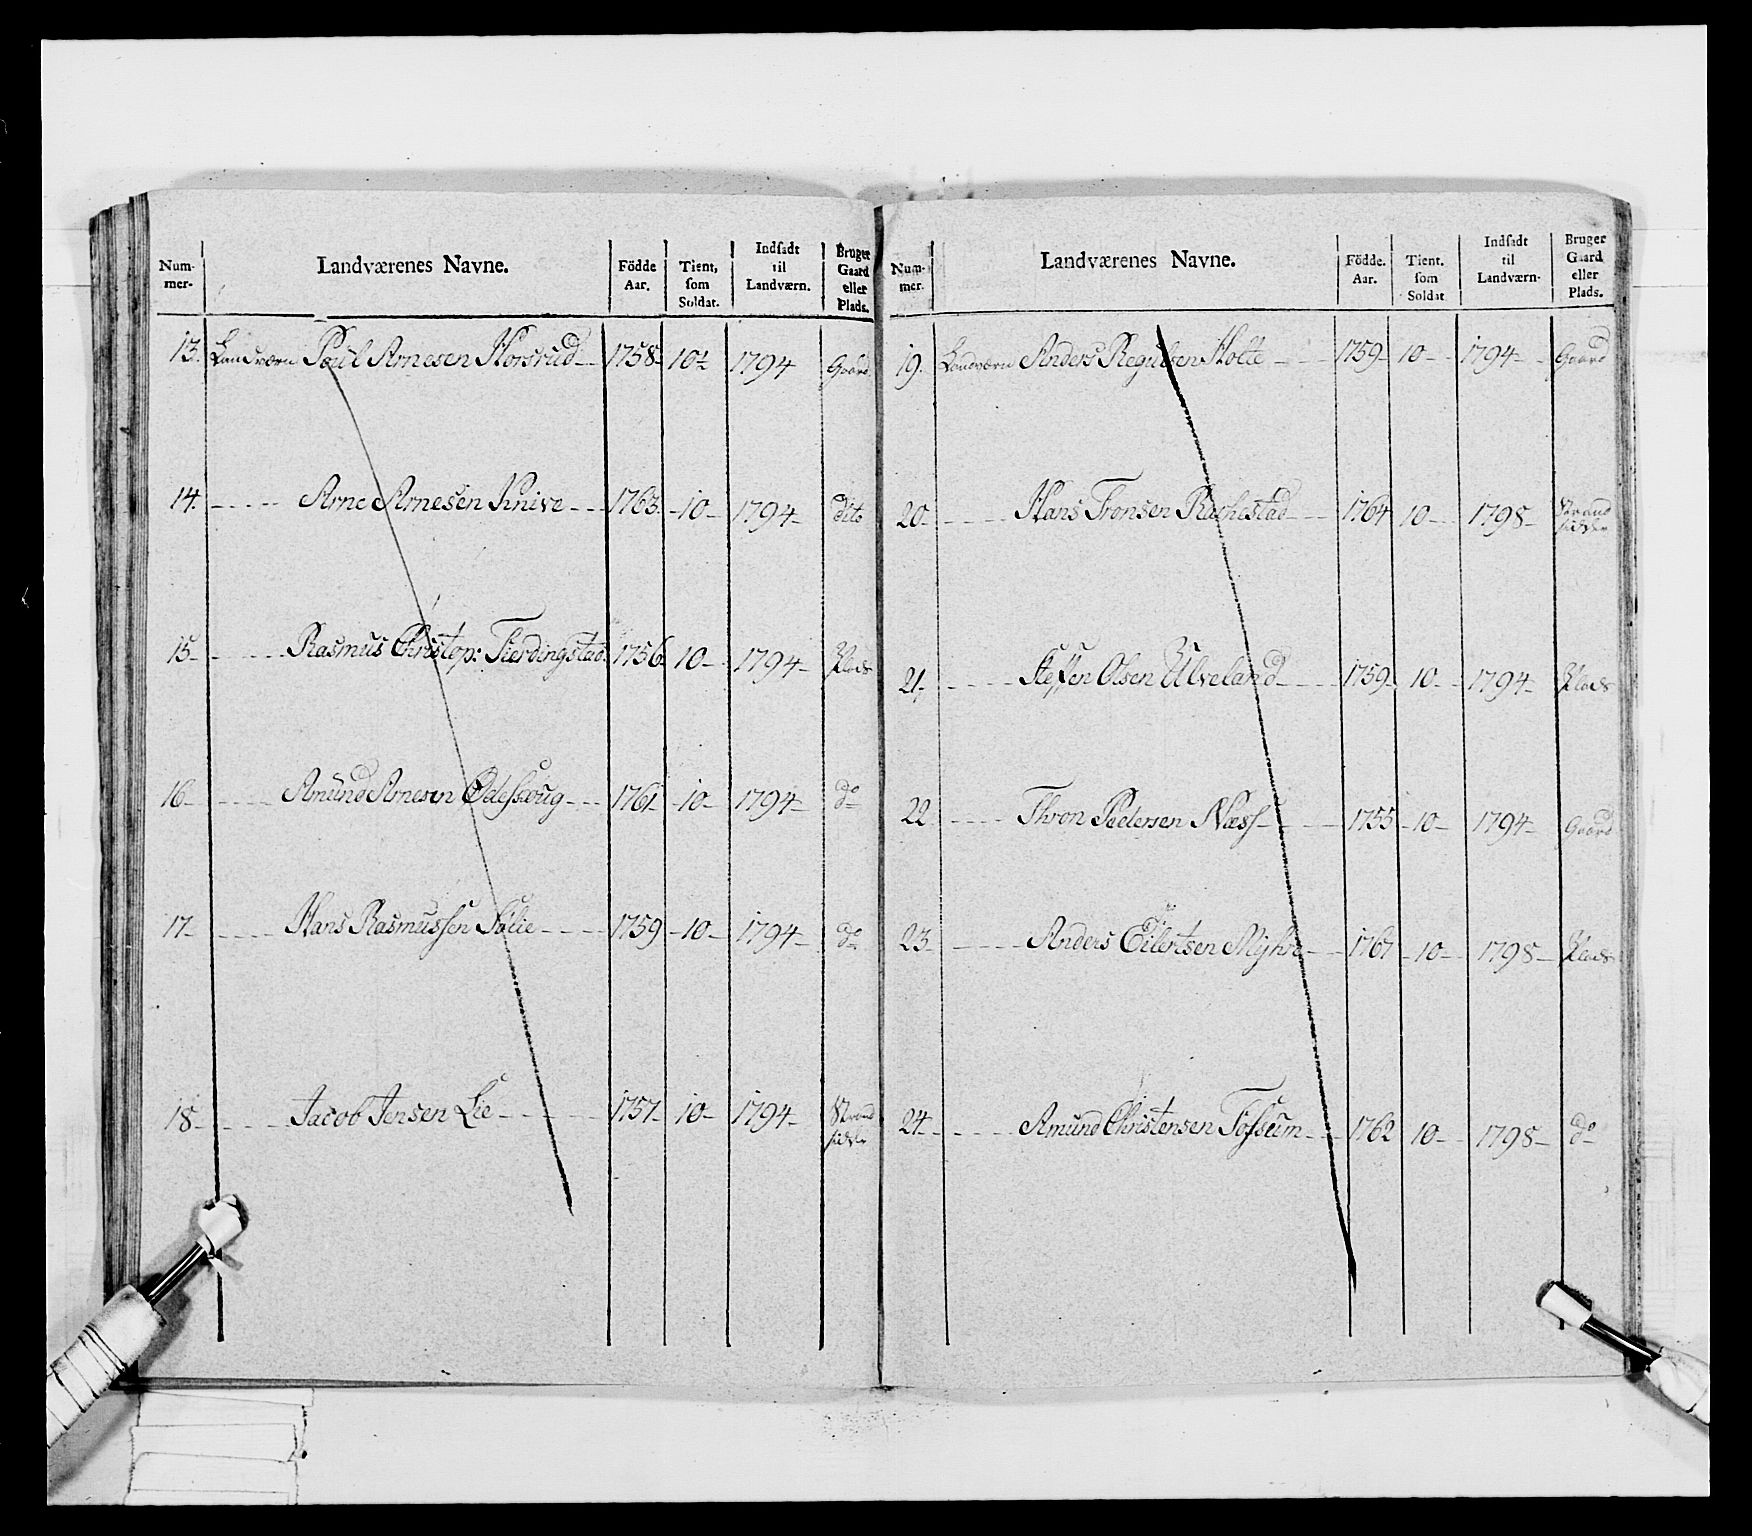 Num-
mer-
Landværenes Navne.
Födde
Aar.
Tient,
som
Soldat.
Indsadt
til
Landværn.
Bruger
Gaard
eller
Plads.
13. Landværn Poul Arnesen Horsrud 1758 10 1794 Gaard
14. Arne Arnesen Knive 1763 10 1794 dito
15 Rasmus Christop: Fierdingstad 1756 10 1794 Plads
16 Amund Arnesen Ødesskoug 1761 10 1794 do
17 Hans Rasmussen Sølie 1759 10 1794 do
18 Jacob Jensen Lie 1757 10 1794 Strand
sidder
Num-
mer.
Landværenes Navne.
Födde.
Aar.
Tient.
som
Soldat
Indsadt
til
Landværn-
Bruger
Gaard
eller
Plads.
19. Landværn Anders Regulsen Holte 1759 10 1794 Gaard
20 Hans Tronsen 1764 10 1798 Strand
sidder
21. Steffen Olsen Ulveland 1759 10 1794 Plads
22 Thron Pedersen Næss 1755 10 1794 Gaard
23 Anders Eilertsen Myhre 1767 10 1798 Plads
24 Amund Christensen Fossum 1762 10 1798 do